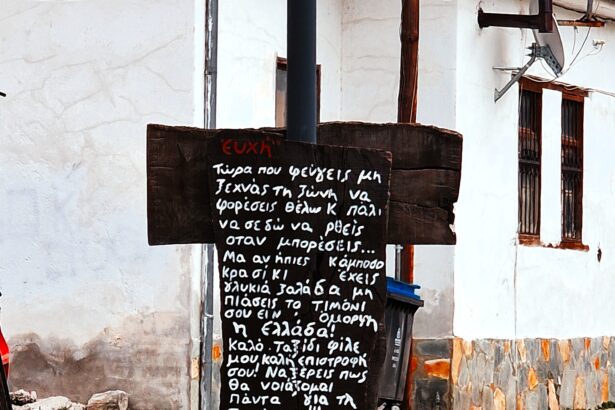 'Ευχή'
Τώρα που φεύγεις μη
ξεχνάς τη ζώνη να
φορέσεις θέλω κ πάλι
να σε δώ να ρθείς
οταν μπορέσεις...
Μα αν ήπιες κάμποσο
κρασί κι έχεις
γλυκιά ζαλάδα μη
πιάσεις το τιμόνι
σου είν' όμορφη
η Ελλάδα!
Καλό ταξίδι φίλε
μου καλή επιστροφή
σου! Να ξέρεις πως
θα νοιάζομαι
πάντα για τη